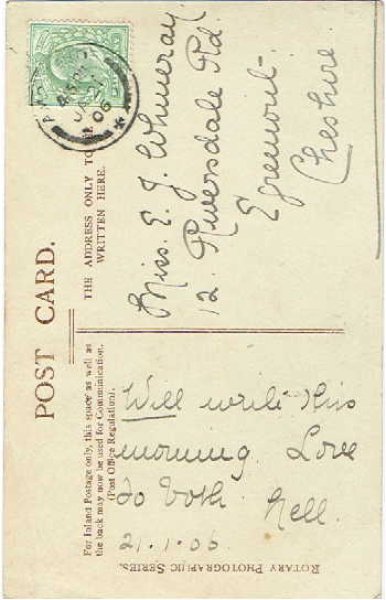 POST CARD.
For Inland Postage only, this space as well as
the back may now be used for Communication.
(Post Office Regulation).
THE ADDRESS ONLY TO
WRITTEN HERE.
Will write this
morning. Love
to both. Nell.
21.1.06
Miss. E. J.
12 Riversdale Rd.
Egremont.
Cheshire.
ROTARY PHOTOGRAPHIC SERIES.
JA 21
06